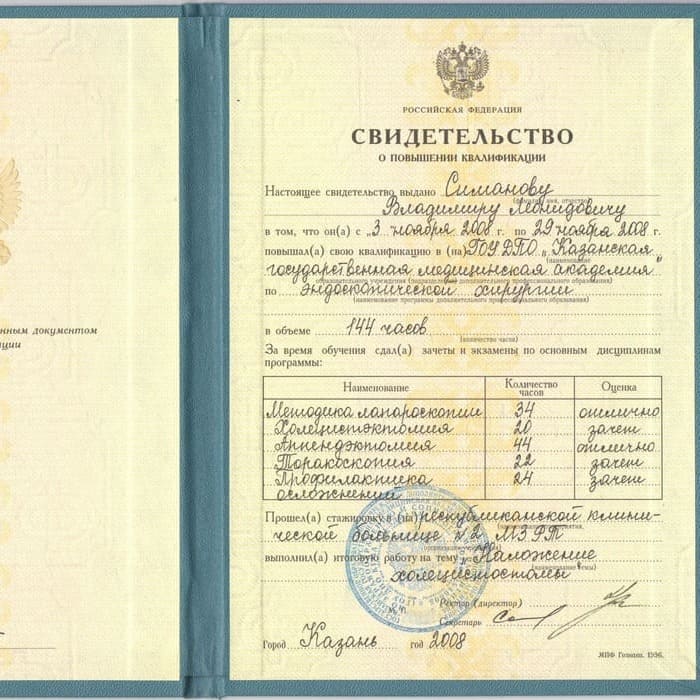 нным документом
ции
РОССИЙСКАЯ ФЕДЕРАЦИЯ
СВИДЕТЕЛЬСТВО
О ПОВЫШЕНИИ КВАЛИФИКАЦИИ
Настоящее свидетельство выдано Симанову
Владимиру Леонидовичу
(фамилия, имя, отчество)
в том, что он(а) с „3" ноября 2008 г. по „29" ноября 2008 г.
повышал(а) свою квалификацию в (на) ГОУ ДПО „Казанская
(наименование
государственная медицинская академия"
образовательного учреждения (подразделения) дополнительного профессионального образования)
по эндоскопической хирургии
(наименование программы дополнительного профессионального образования)
в объеме 144 часов
(количество часов)
За время обучения сдал(а) зачеты и экзамены по основным дисциплинам
программы:
Наименование Количество часов Оценка
Методика лапароскопии 34 отлично
Холецистэктомия 20 зачет
Аппендэктомия 44 отлично
Торакоскопия 22 зачет
Профилактика 24 зачет
осложнений
Прошел(а) стажировку в (на) республиканской клини-
ческой больнице №2 МЗ РТ
выполнил(а) итоговую работу на тему „Наложение
холецистостомы"
Ректор (директор)
Секретарь
Город Казань год 2008
МПФ Гознак. 1996.